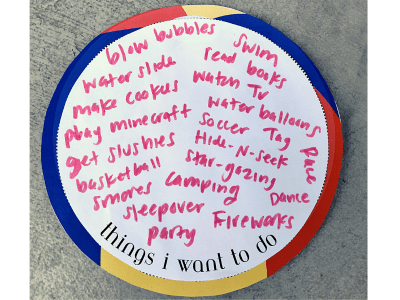 blow bubbles
swim
water slide
read books
make cookies
watch TV
play minecraft
water balloons
get slushies
Soccer
Tag
Race
basketball
Hide-N-seek
smores
star-gazing
camping
Dance
sleepover
Fireworks
party
things i want to do